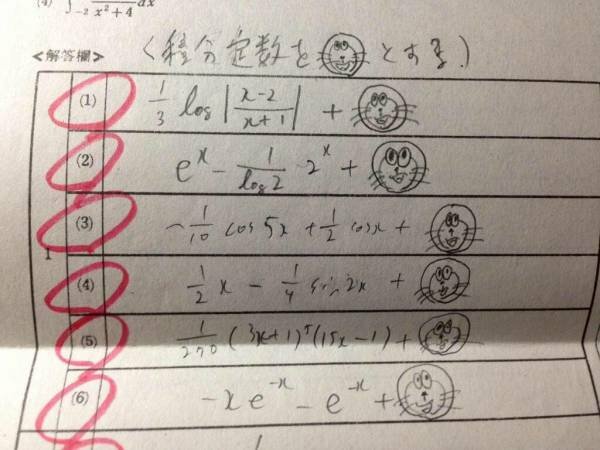 (4) ∫₋₂ x²+4 dx
<解答欄> (積分定数を とする.)
1
(1) 1/3 log |x-2/x+1| +
(2) eˣ - 1/log2 · 2ˣ +
(3) -1/10 cos5x + 1/2 cosx +
(4) 1/2 x - 1/4 sin2x +
(5) 1/270 (3x+1)⁵(15x-1) +
(6) -xe⁻ˣ - e⁻ˣ +